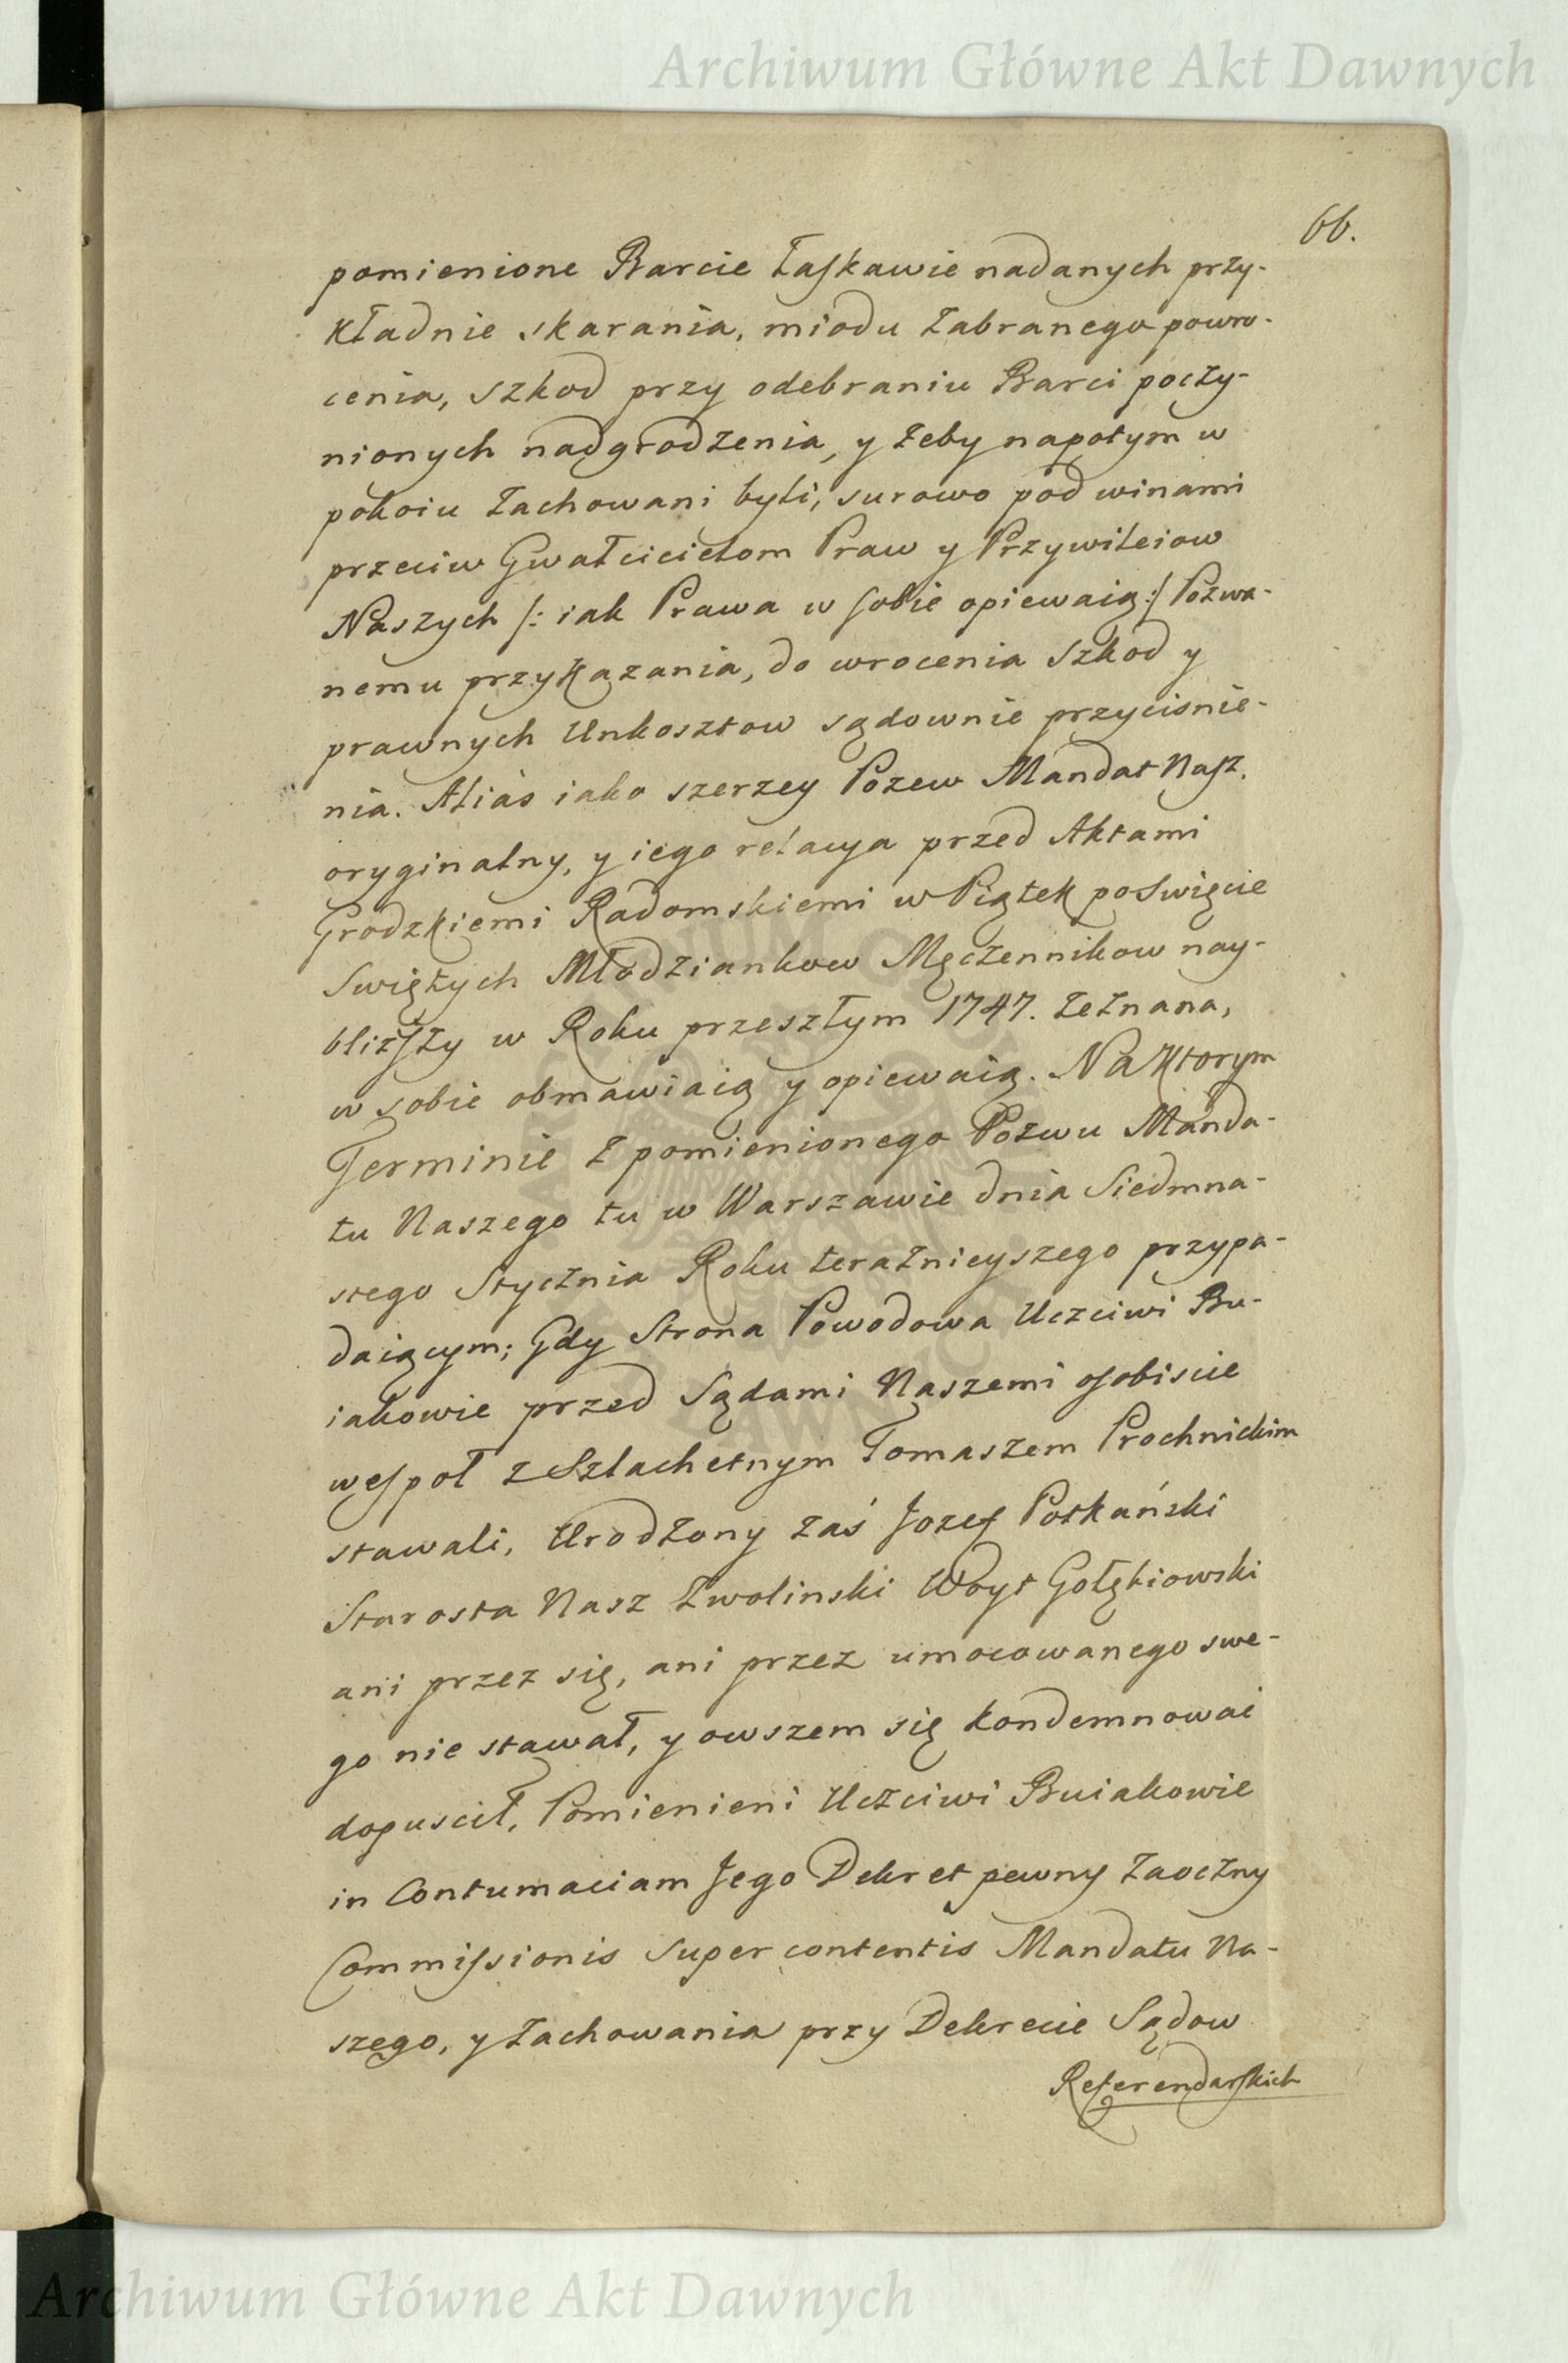 Archiwum Główne Akt Dawnych
66.
pomienione Barcie łaskawie nadanych przy-
kładnie skarania, miodu zabranego powro-
cenia, szkod przy odebraniu Barci poczy-
nionych nadgrodzenia, y żeby napotym w
pokoiu zachowani byli, surowo pod winami
przeciw Gwałcicielom Praw y Przywileiow
Naszych /: iak Prawa w sobie opiewaią :/ Pozwa-
nemu przykazania, do wrocenia Szkod y
prawnych Unkosztow sądownie przyciśnie-
nia. Alias iako szerzey Pozew Mandat Nasz.
oryginalny, y iego relacya przed Aktami
Grodzkiemi Radomskiemi w Piątek po Święcie
Swiętych Młodziankow Męczennikow nay-
bliższy w Roku przeszłym 1747. zeznana,
w sobie obmawiaią y opiewaią. Na Ktorym
Terminie z pomienionego Pozwu Manda-
tu Naszego tu w Warszawie dnia Siedmna-
stego Stycznia Roku teraznieyszego przypa-
daiącym; Gdy Strona Powodowa Uczciwi Bu-
iakowie przed Sądami Naszemi osobiscie
wespoł z Szlachetnym Tomaszem Prochnickim
stawali, Urodzony zaś Jozef Potkański
Starosta Nasz Zwolinski Woyt Gołębiowski
ani przez się, ani przez umocowanego swe-
go nie stawał, y owszem się kondemnować
dopuscił, Pomienieni Uczciwi Buiakowie
in Contumaciam Jego Dekret pewny zaoczny
Commissionis Super contentis Mandatu Na-
szego, y zachowania przy Dekrecie Sądow
Referendarskich
Archiwum Główne Akt Dawnych